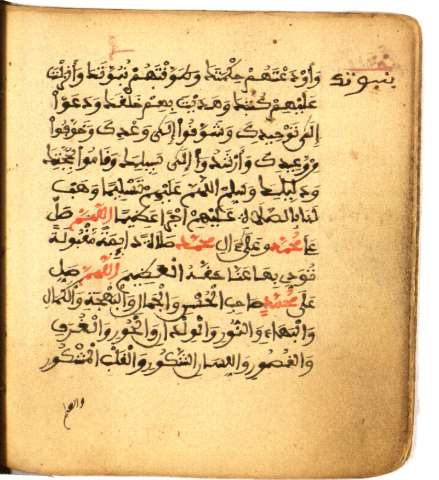 وَأَوْدَعْتَهُمْ حِكْمَتَكَ وَطَوَّقْتَهُمْ نُبُوَّتَكَ وَأَنزَلْتَ
بنبوتك
عَلَيْهِمْ كُتُبَكَ وَهَدَيْتَ بِهِمْ خَلْقَكَ وَدَعَوْا
إِلَى تَوْحِيدِكَ وَشَوَّقُوا إِلَى وَعْدِكَ وَخَوَّفُوا
مِن وَعِيدِكَ وَأَرْشَدُوا إِلَى سَبِيلِكَ وَقَامُوا بِحُجَّتِكَ
وَدَلِيلِكَ وَسَلِّمِ اللَّهُمَّ عَلَيْهِمْ تَسْلِيمًا وَهَبْ
لَنَا بِالصَّلَاةِ عَلَيْهِمْ أَجْرًا عَظِيمًا اللَّهُمَّ صَلِّ
عَلَى مُحَمَّدٍ وَعَلَى ءَالِ مُحَمَّدٍ صَلَاةً دَايِمَةً مَقْبُولَةً
تُوَدِّي بِهَا عَنَّا حَقَّهُ الْعَظِيمَ اللَّهُمَّ صَلِّ
عَلَى مُحَمَّدٍ صَاحِبِ الْحُسْنِ وَالْجَمَالِ وَالْبَهْجَةِ وَالْكَمَالِ
وَالْبَهَاءِ وَالنُّورِ وَالْوِلْدَانِ وَالْحُورِ وَالْغُرَفِ
وَالْقُصُورِ وَاللِّسَانِ الشَّكُورِ وَالْقَلْبِ الْمَشْكُورِ